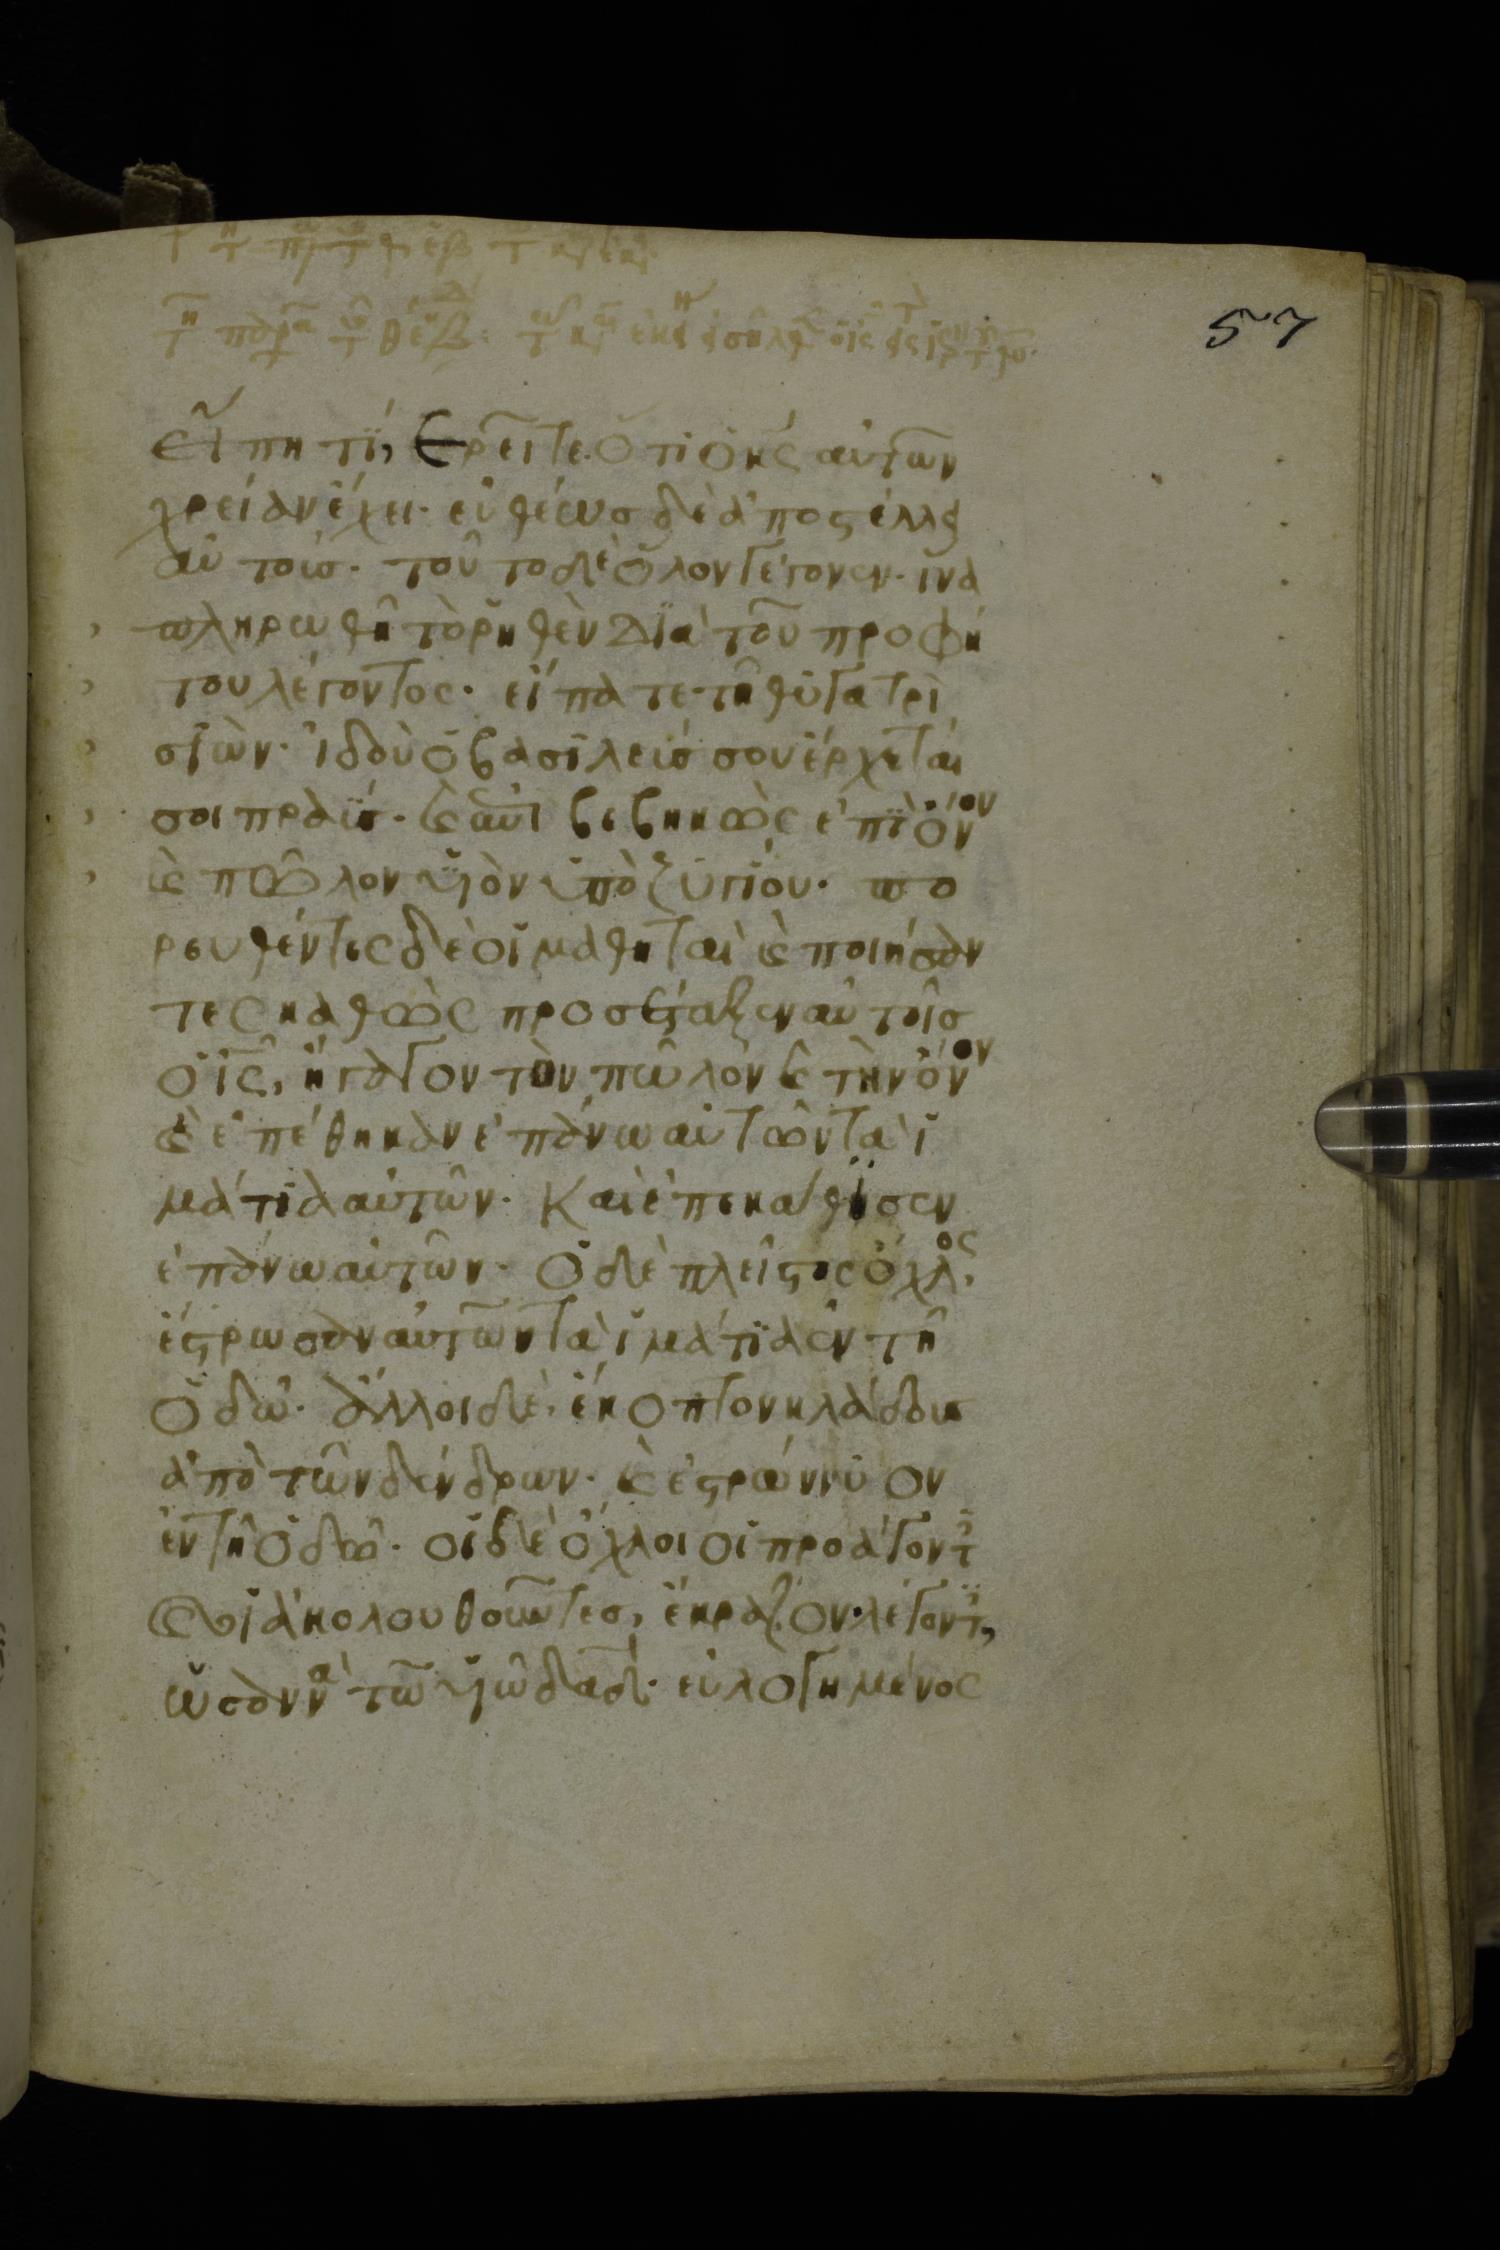 57
εἴπη τϊ, ἐρεῖτε· ὅτι ὁ κ̅ς̅ αὐτῶν
χρείαν ἔχει· εὐθέωσ δὲ ἀποστέλλει
αὐτούσ· τοῦτο δὲ ὅλον γέγονεν· ἵνα
πληρωθῆ τὸ ῥηθὲν διὰ τοῦ προφή
του λέγοντος· εἴπατε τῆ θυγατρὶ
σιών· ἰδοὺ ὁ βασιλεύσ σου ἔρχεταί
σοι πραΰσ· καὶ βεβηκὼς ἐπὶ ὄνον
καὶ πῶλον υἱὸν ὑποζυγίου· πο
ρευθέντες δὲ οἱ μαθηταὶ καὶ ποιήσαν
τες καθὼς προσέταξεν αὐτοῖσ
ὁ ι̅ς̅, ἤγαγον τὸν πῶλον καὶ τὴν ὄνον
καὶ ἐπέθηκαν ἐπάνω αὐτῶν τὰ ἱ
μάτια αὐτῶν· Καὶ ἐπεκάθισεν
ἐπάνω αὐτῶν· Ὁ δὲ πλεῖστος ὄχλος,
ἔστρωσαν αὐτῶν τὰ ἱμάτια ἐν τῆ
ὁδῶ· ἄλλοι δὲ, ἔκοπτον κλάδουσ
ἀπὸ τῶν δένδρων· καὶ ἐστρώννυον
ἐν τῆ ὁδῶ· οἱ δὲ ὄχλοι οἱ προάγοντες
καὶ οἱ ἀκολουθοῦντεσ, ἔκραζον λέγοντες,
ὡσαννὰ τῶ υἱῶ δα̅δ̅· εὐλογημένος